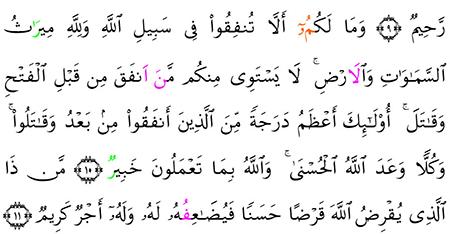 رَّحِيمٌ ۝٩ وَمَا لَكُمُۥٓ أَلَّا تُنفِقُواْ فِى سَبِيلِ اللَّهِ وَلِلَّهِ مِيرَٰثُ
السَّمَٰوَٰتِ وَالَارْضِ ۚ لَا يَسْتَوِى مِنكُم مَّنَ اَنفَقَ مِن قَبْلِ الْفَتْحِ
وَقَٰتَلَ ۚ أُوْلَٰٓئِكَ أَعْظَمُ دَرَجَةً مِّنَ الَّذِينَ أَنفَقُواْ مِنۢ بَعْدُ وَقَٰتَلُواْ ۚ
وَكُلًّا وَعَدَ اللَّهُ الْحُسْنَىٰ ۚ وَاللَّهُ بِمَا تَعْمَلُونَ خَبِيرٌ ۝١٠ مَّن ذَا
الَّذِى يُقْرِضُ اللَّهَ قَرْضًا حَسَنًا فَيُضَٰعِفُهُۥ لَهُۥ وَلَهُۥٓ أَجْرٌ كَرِيمٌ ۝١١